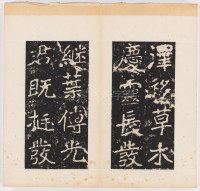 澤符草木
慶靈長發
継葉傳光
君既挺發